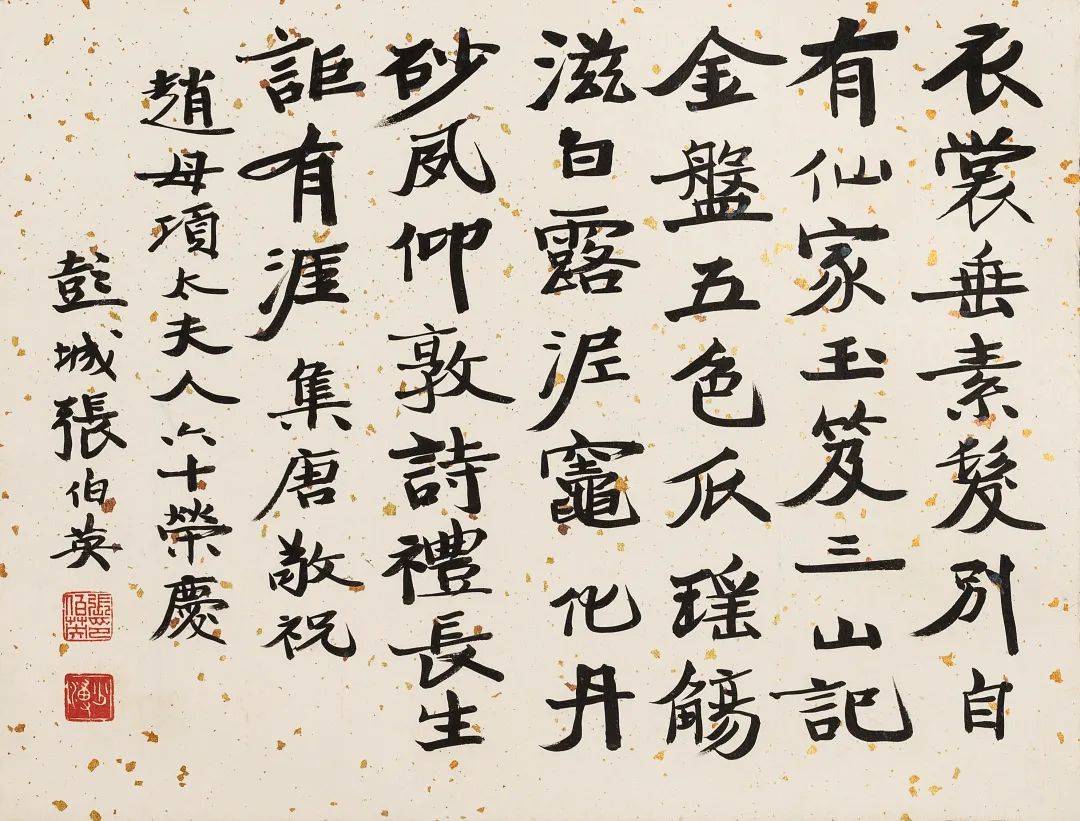 衣裳垂素髮別自
有仙家玉笈三山記
金盤五色瓜瑤觴
滋白露泥竈化丹
砂夙仰敦詩禮長生
詎有涯集唐敬祝
趙母項太夫人六十榮慶
彭城張伯英
張印伯英
少溥